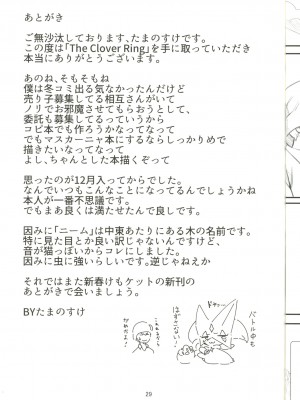 あとがき
ご無沙汰しております、たまのすけです。
この度は「The Clover Ring」を手に取っていただき
本当にありがとうございます。
あのね、そもそもね
僕は冬コミ出る気なかったんだけど
売り子募集してる相互さんがいて
ノリでお邪魔させてもらおうとして、
委託も募集してるっていうから
コピ本でも作ろうかなってなって
でもマスカーニャ本にするならしっかりめで
描きたいなってなって
よし、ちゃんとした本描くぞって
思ったのが12月入ってからでした。
なんでいつもこんなことになってるんでしょうかね
本人が一番不思議です。
でもまあ良くは満たせたんで良しです。
因みに「ニーム」は中東あたりにある木の名前です。
特に見た目とか良い訳じゃないんですけど、
音が猫っぽいからコレにしました。
因みに虫に強いらしいです。逆じゃねえか
それではまた新春けもケットの新刊の
あとがきで会いましょう。
BYたまのすけ
バトル中も
はずさない!
29